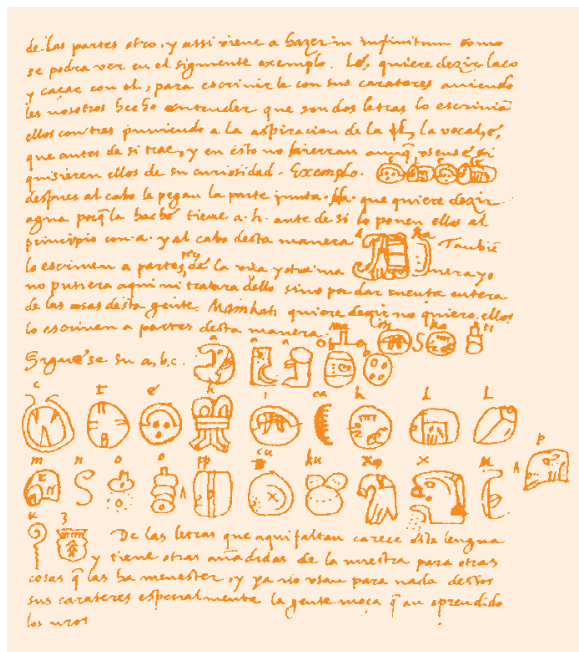 de las partes otro, y assi viene a hazer in infinitum como
se podra ver en el siguiente exemplo. Lé, quiere dezir laço
y caçar con el, para escrivirle con sus carateres aviendo
les nosotros hecho entender que son dos letras lo escrivian
ellos con tres puniendo a la aspiracion de la l, la vocal, é,
que antes de si trae, y en esto no hierran aunq̃ usense si
quisieren ellos de su curiosidad. Exemplo.
despues al cabo le pegan la parte junta. Ha. que quiere dezir
agua porq̃ la hache tiene a. h. ante de si lo ponen ellos al
principio con. a. y al cabo desta manera
a ha
Tambiē
lo escriven a partes, de la una y otra ma nera yo
no pusiera aqui ni tratara dello sino por dar cuenta entera
de las cosas desta gente. Mainkati quiere dezir no quiero, ellos
lo escriven a partes desta manera.
ma i n ka ti
Siguese su a, b, c.
a a a b b
c t é h i ca k l l
m n o o pp cu ku x x u p
u z
De las letras que aqui faltan carece esta lengua
y tiene otras añadidas de la nuestra para otras
cosas q̃ las ha menester, y ya no usan para nada destos
sus carateres especialmente la gente moça q̃ an aprendido
los nros